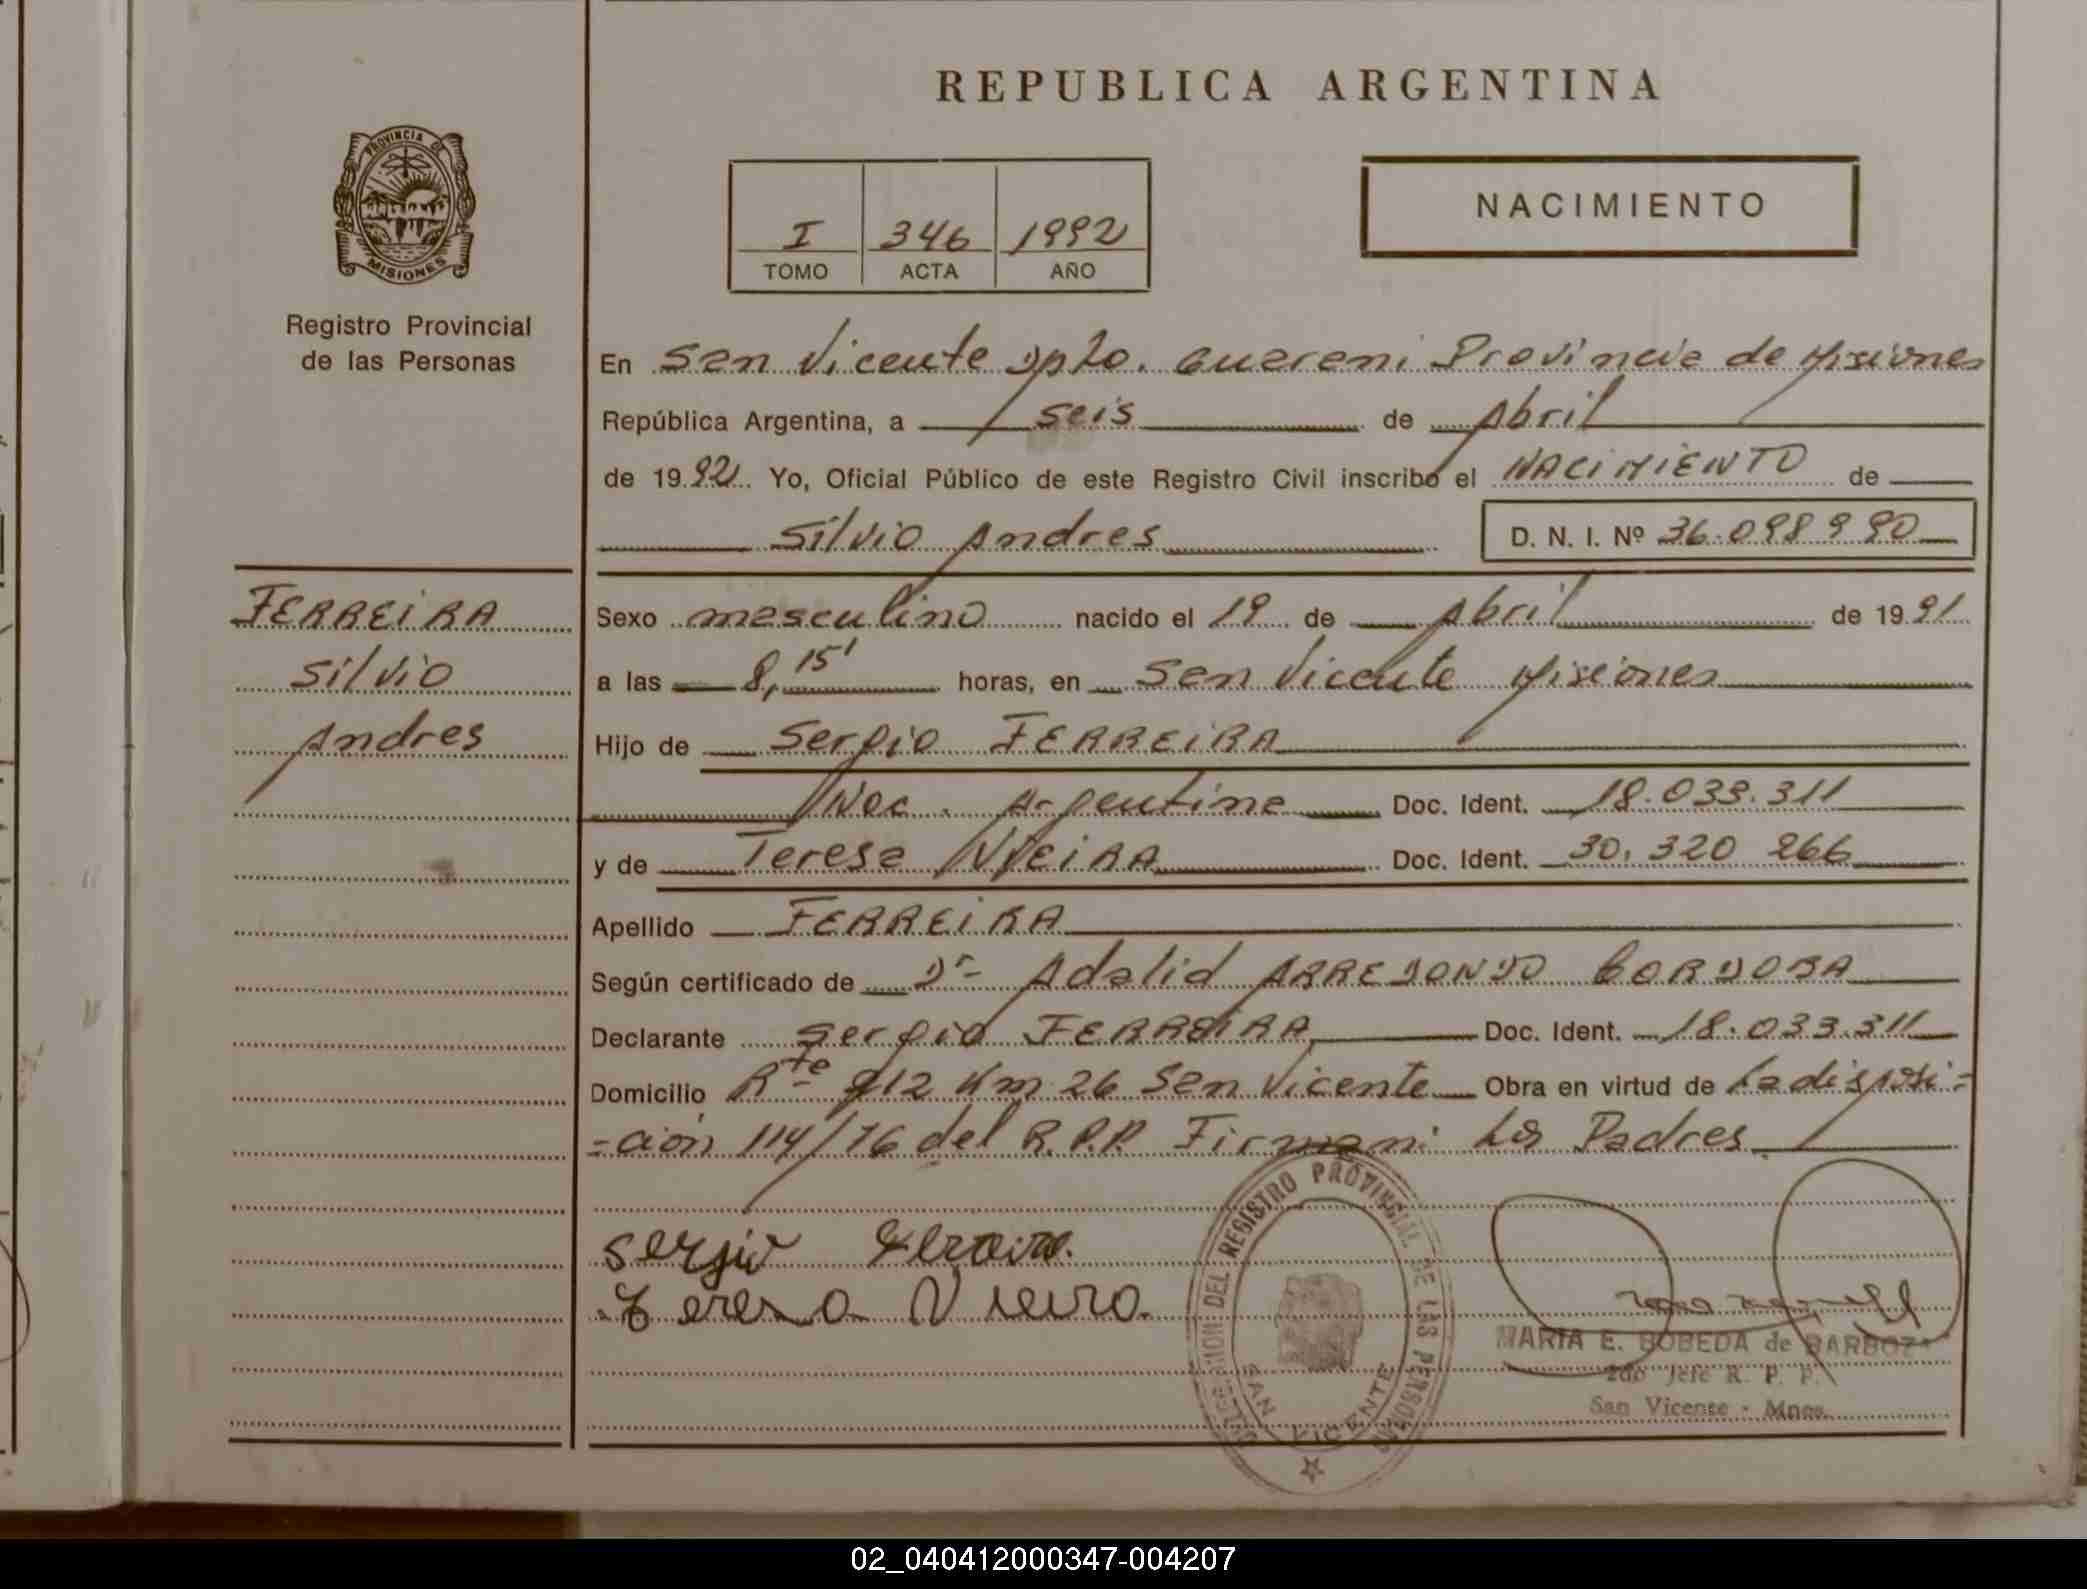 REPUBLICA ARGENTINA
PROVINCIA DE
MISIONES
Registro Provincial
de las Personas
I 346 1992
TOMO ACTA AÑO
NACIMIENTO
En San Vicente Dpto. Guarani Provincia de Misiones
República Argentina, a seis de Abril
de 1992 Yo, Oficial Público de este Registro Civil inscribo el NACIMIENTO de
Silvio Andres D. N. I. Nº 36.098990
FERREIRA
Silvio
Andres
Sexo masculino nacido el 19 de Abril de 1991
a las 8,15' horas, en San Vicente Misiones
Hijo de Sergio FERREIRA
Nac. Argentina Doc. Ident. 18.033.311
y de Teresa VIEIRA Doc. Ident. 30.320 266
Apellido FERREIRA
Según certificado de Dr Adalid ARREDONDO CORDOBA
Declarante Sergio FERREIRA Doc. Ident. 18.033.311
Domicilio Rte 212 Km 26 San Vicente Obra en virtud de La disposi=
=ción 114/76 del R.P.P. Firman: Los Padres
Sergio Ferreira.
Teresa Vieira.
DEL REGISTRO PROVINCIAL DE LAS PERSONAS
SAN VICENTE
MARIA E. BOBEDA de BARBOZA
2do Jefe R. P. P.
San Vicente - Mnes.
02_040412000347-004207